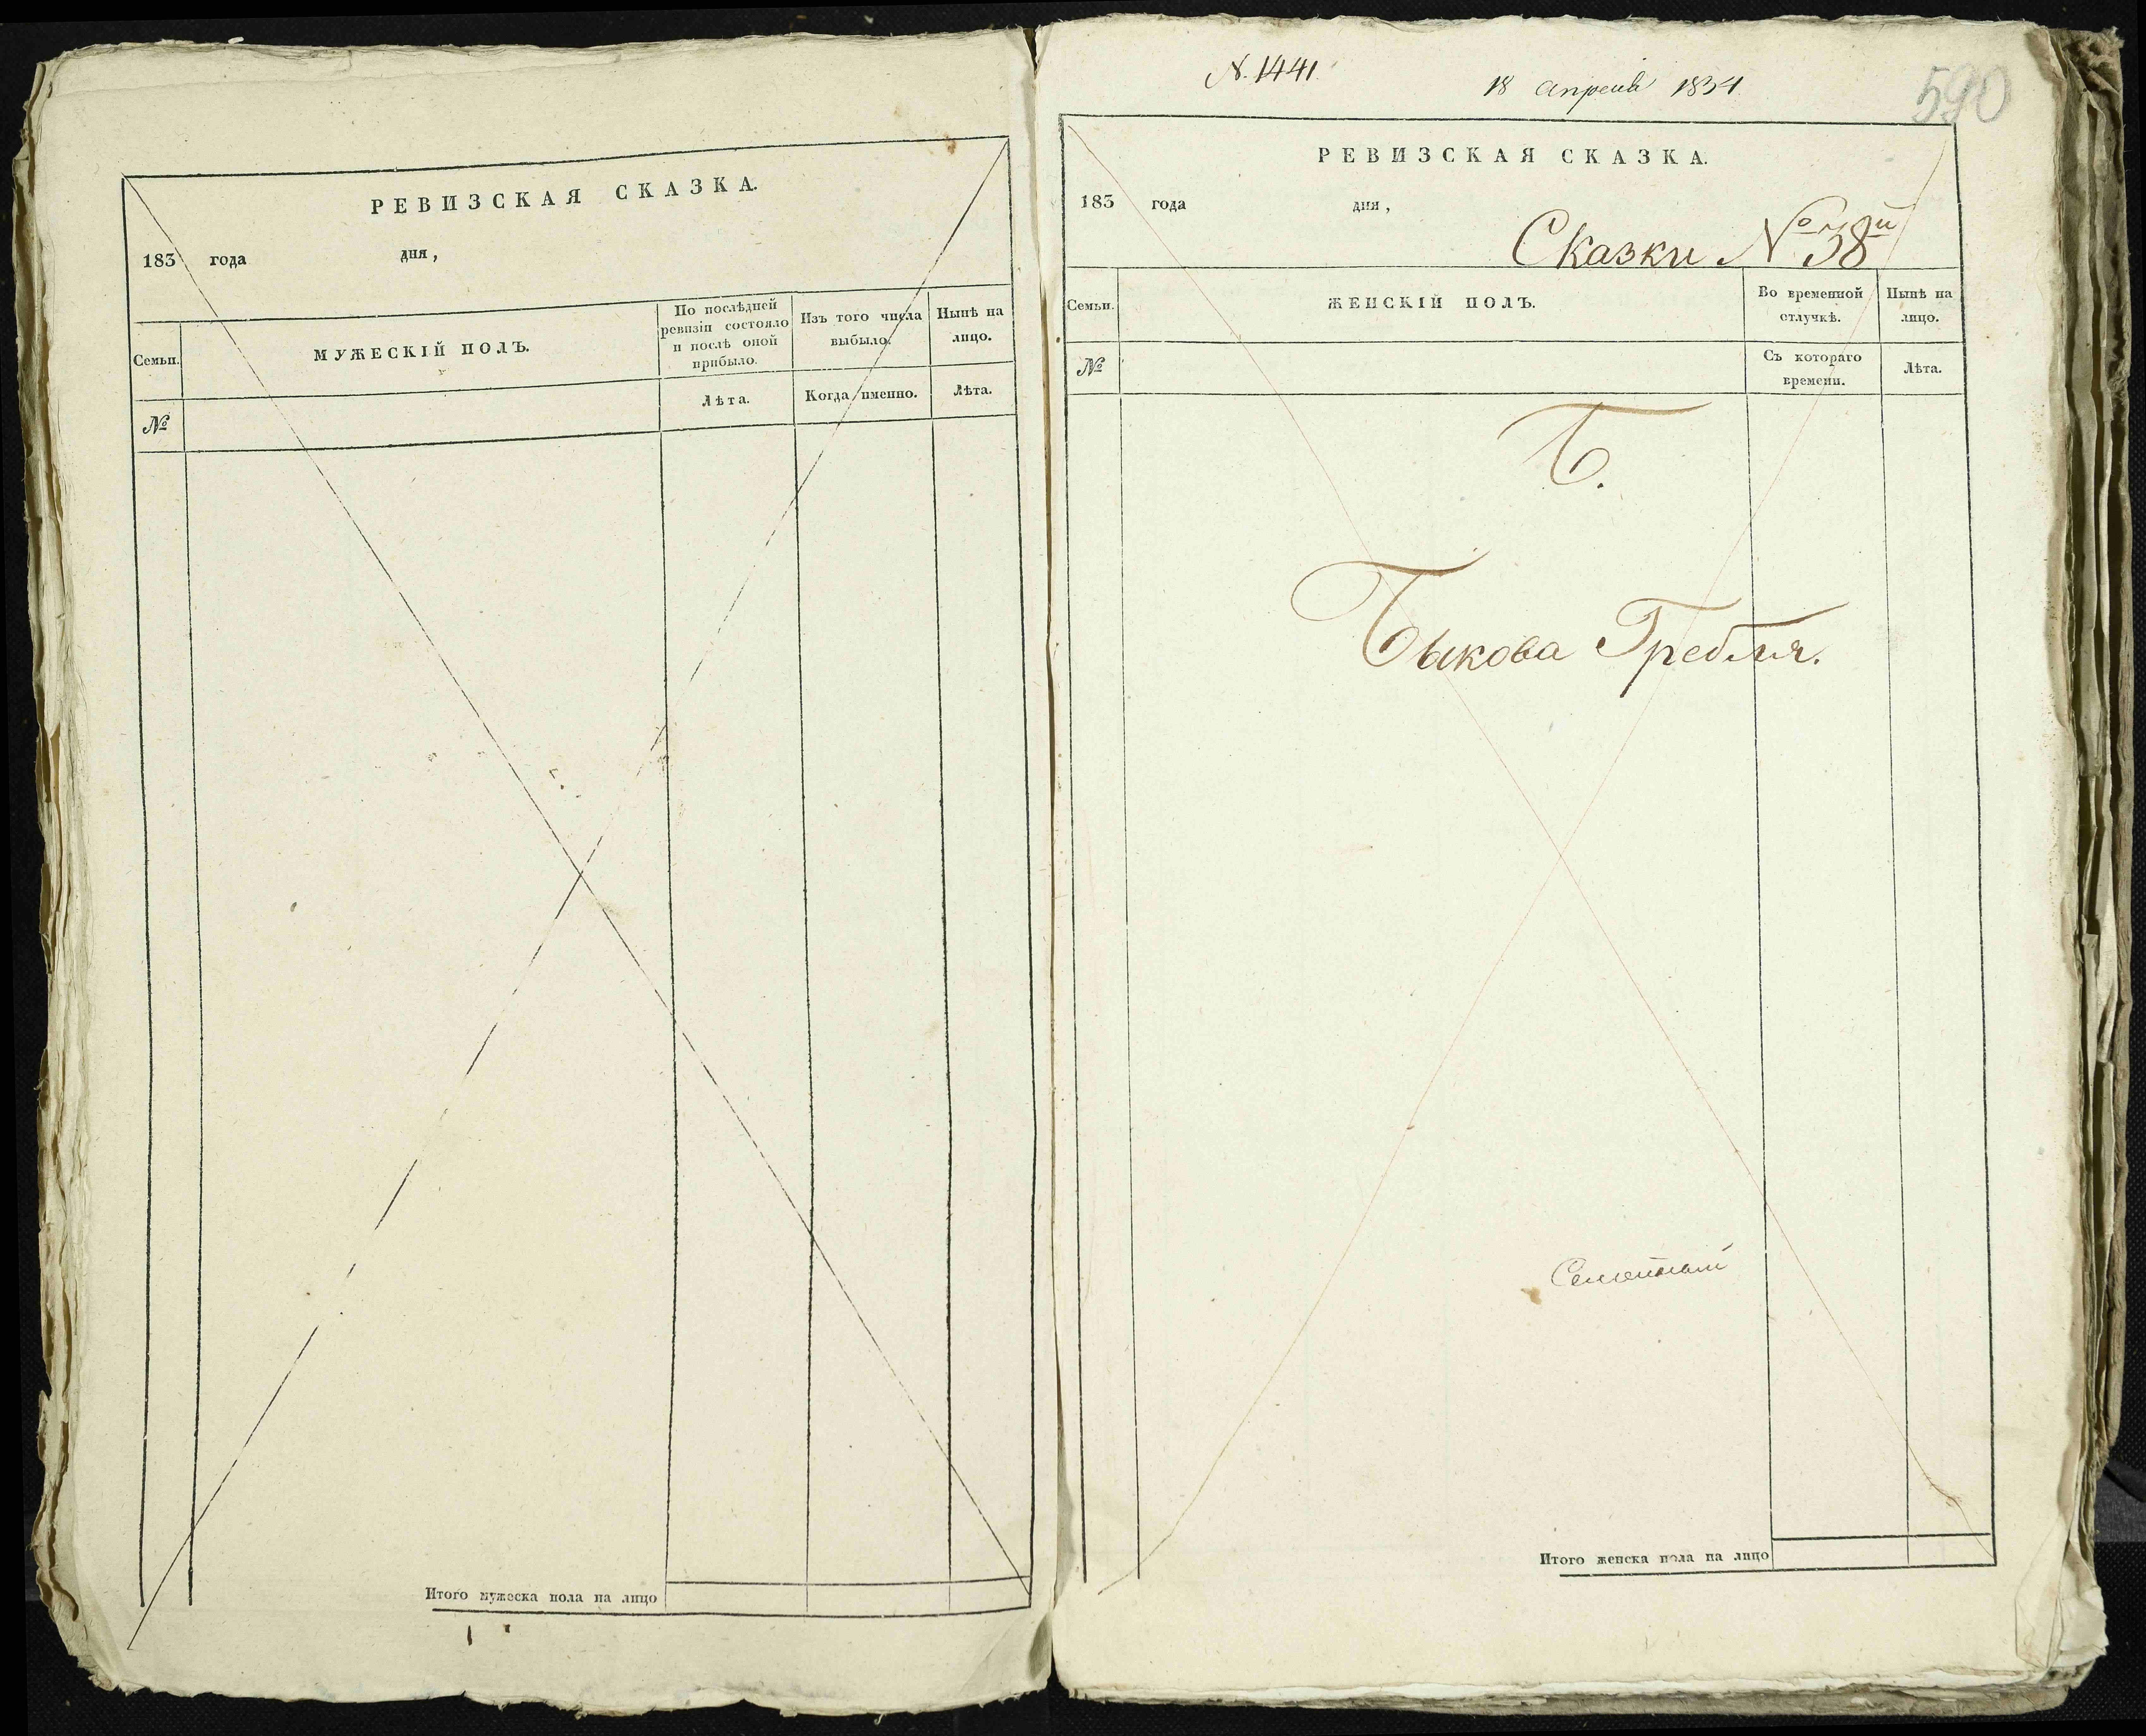 РЕВИЗСКАЯ СКАЗКА.
183 года дня,
Семьи.
МУЖЕСКІЙ ПОЛЪ.
По послѣдней
ревизіи состояло
и послѣ оной
прибыло.
Изъ того числа
выбыло.
Нынѣ на
лицо.
№
Лѣта.
Когда именно.
Лѣта.
Итого мужеска пола на лицо
N. 1441.
18 апреля 1834
590
РЕВИЗСКАЯ СКАЗКА.
183 года дня,
Сказки № 38й
Семьи.
ЖЕНСКІЙ ПОЛЪ.
Во временной
отлучкѣ.
Нынѣ на
лицо.
№
Съ котораго
времени.
Лѣта.
Б.
Быкова Гребля.
Итого женска пола на лицо